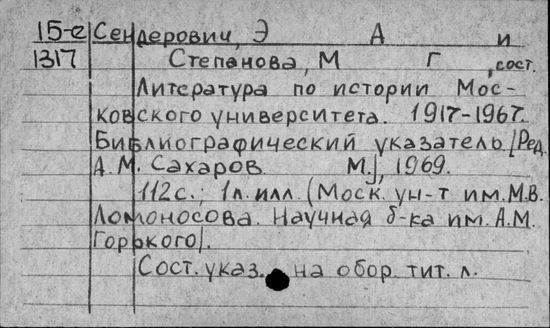 15-е Сендерович, Э А и
1317 Степанова, М Г , сост.
Литература по истории Мос-
ковского университета. 1917-1967.
Библиографический указатель. [Ред.
А.М. Сахаров. М.], 1969.
112с.; 1л.илл. (Моск. ун-т им.М.В.
Ломоносова. Научная б-ка им. А.М.
Горького).
Сост. указ. на обор. тит. л.